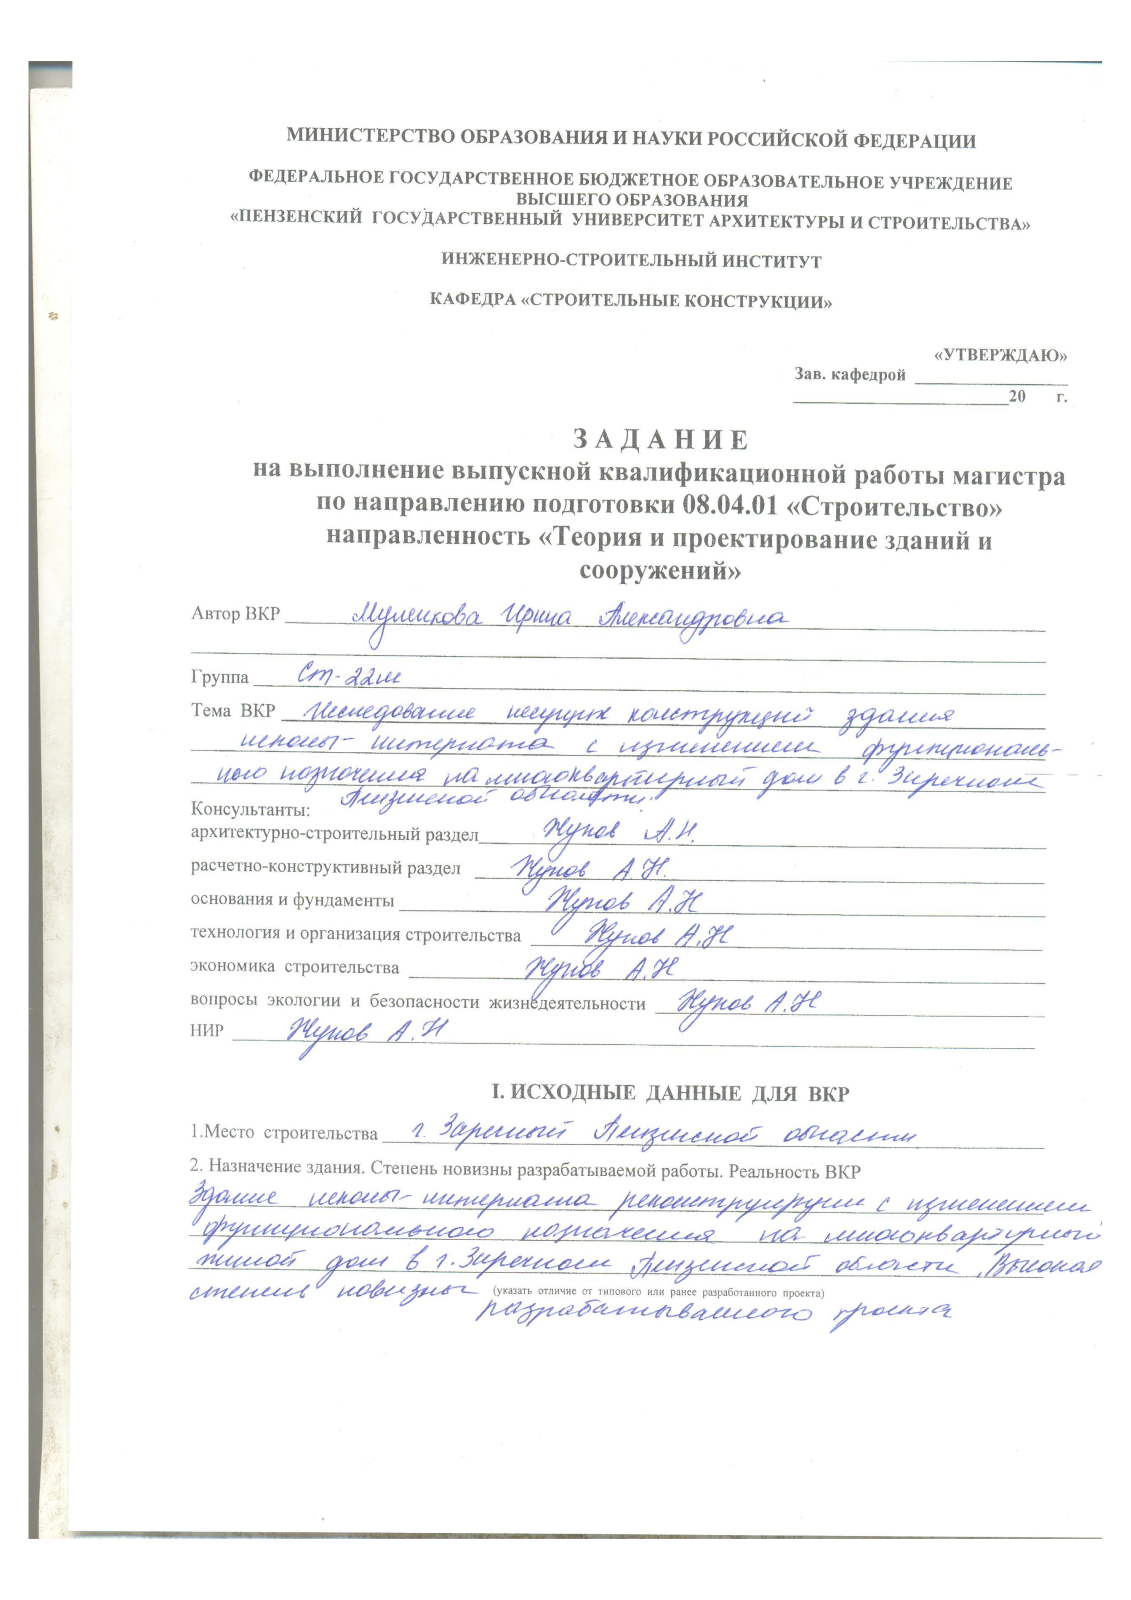 МИНИСТЕРСТВО ОБРАЗОВАНИЯ И НАУКИ РОССИЙСКОЙ ФЕДЕРАЦИИ
ФЕДЕРАЛЬНОЕ ГОСУДАРСТВЕННОЕ БЮДЖЕТНОЕ ОБРАЗОВАТЕЛЬНОЕ УЧРЕЖДЕНИЕ
ВЫСШЕГО ОБРАЗОВАНИЯ
«ПЕНЗЕНСКИЙ ГОСУДАРСТВЕННЫЙ УНИВЕРСИТЕТ АРХИТЕКТУРЫ И СТРОИТЕЛЬСТВА»
ИНЖЕНЕРНО-СТРОИТЕЛЬНЫЙ ИНСТИТУТ
КАФЕДРА «СТРОИТЕЛЬНЫЕ КОНСТРУКЦИИ»
«УТВЕРЖДАЮ»
Зав. кафедрой
20 г.
З А Д А Н И Е
на выполнение выпускной квалификационной работы магистра
по направлению подготовки 08.04.01 «Строительство»
направленность «Теория и проектирование зданий и
сооружений»
Автор ВКР Ирина Александровна
Группа Ст-22м
Тема ВКР Исследование несущих конструкций здания
школы-интерната с изменением функциональ-
ного назначения на многоквартирный дом в г. Заречном
Пензенской области.
Консультанты:
архитектурно-строительный раздел А.Н.
расчетно-конструктивный раздел А.Н.
основания и фундаменты А.Н
технология и организация строительства А.Н
экономика строительства А.Н
вопросы экологии и безопасности жизнедеятельности А.Н
НИР А.Н
I. ИСХОДНЫЕ ДАННЫЕ ДЛЯ ВКР
1.Место строительства г. Заречный Пензенской области
2. Назначение здания. Степень новизны разрабатываемой работы. Реальность ВКР
Здание школы-интерната с изменением
функционального назначения на многоквартирный
жилой дом в г. Заречном Пензенской области, Высокая
степень новизны (указать отличие от типового или ранее разработанного проекта)
разрабатываемого проекта